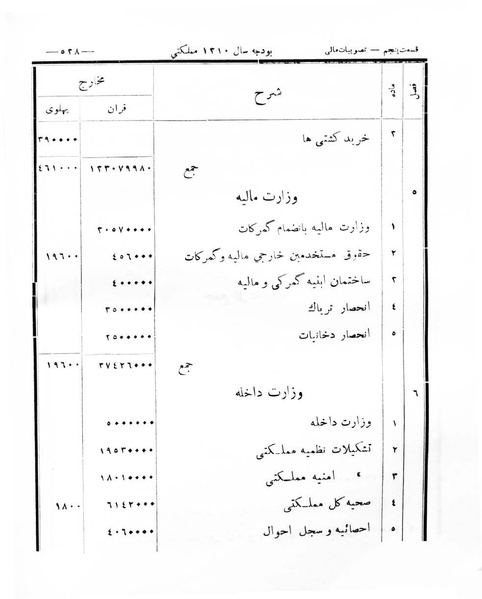 قسمت پنجم — تصویبات مالی بودجه سال ۱۳۱۰ مملکتی —۵۲۸—
فصل ماده شرح مخارج
قران پهلوی
۲ خرید کشتی ها ۳۹۰۰۰۰
جمع ۱۲۳۰۷۹۹۸۰ ٤٦۱۰۰۰
٥ وزارت مالیه
۱ وزارت مالیه بانضمام گمرکات ۳۰٥۷۰۰۰۰
۲ حقوق مستخدمین خارجی مالیه و گمرکات ٤٥٦۰۰۰ ۱۹٦۰۰
۳ ساختمان ابنیه گمرکی و مالیه ٤۰۰۰۰۰
٤ انحصار تریاك ۳٥۰۰۰۰۰
٥ انحصار دخانیات ۲٥۰۰۰۰۰
جمع ۳۷٤۲٦۰۰۰ ۱۹٦۰۰
٦ وزارت داخله
۱ وزارت داخله ٥۰۰۰۰۰۰
۲ تشکیلات نظمیه مملکتی ۱۹٥۳۰۰۰۰
۳ » امنیه مملکتی ۱۸۰۱۰۰۰۰
٤ صحیه کل مملکتی ٦۱٤۲۰۰۰ ۱۸۰۰
٥ احصائیه و سجل احوال ٤۰٦۰۰۰۰